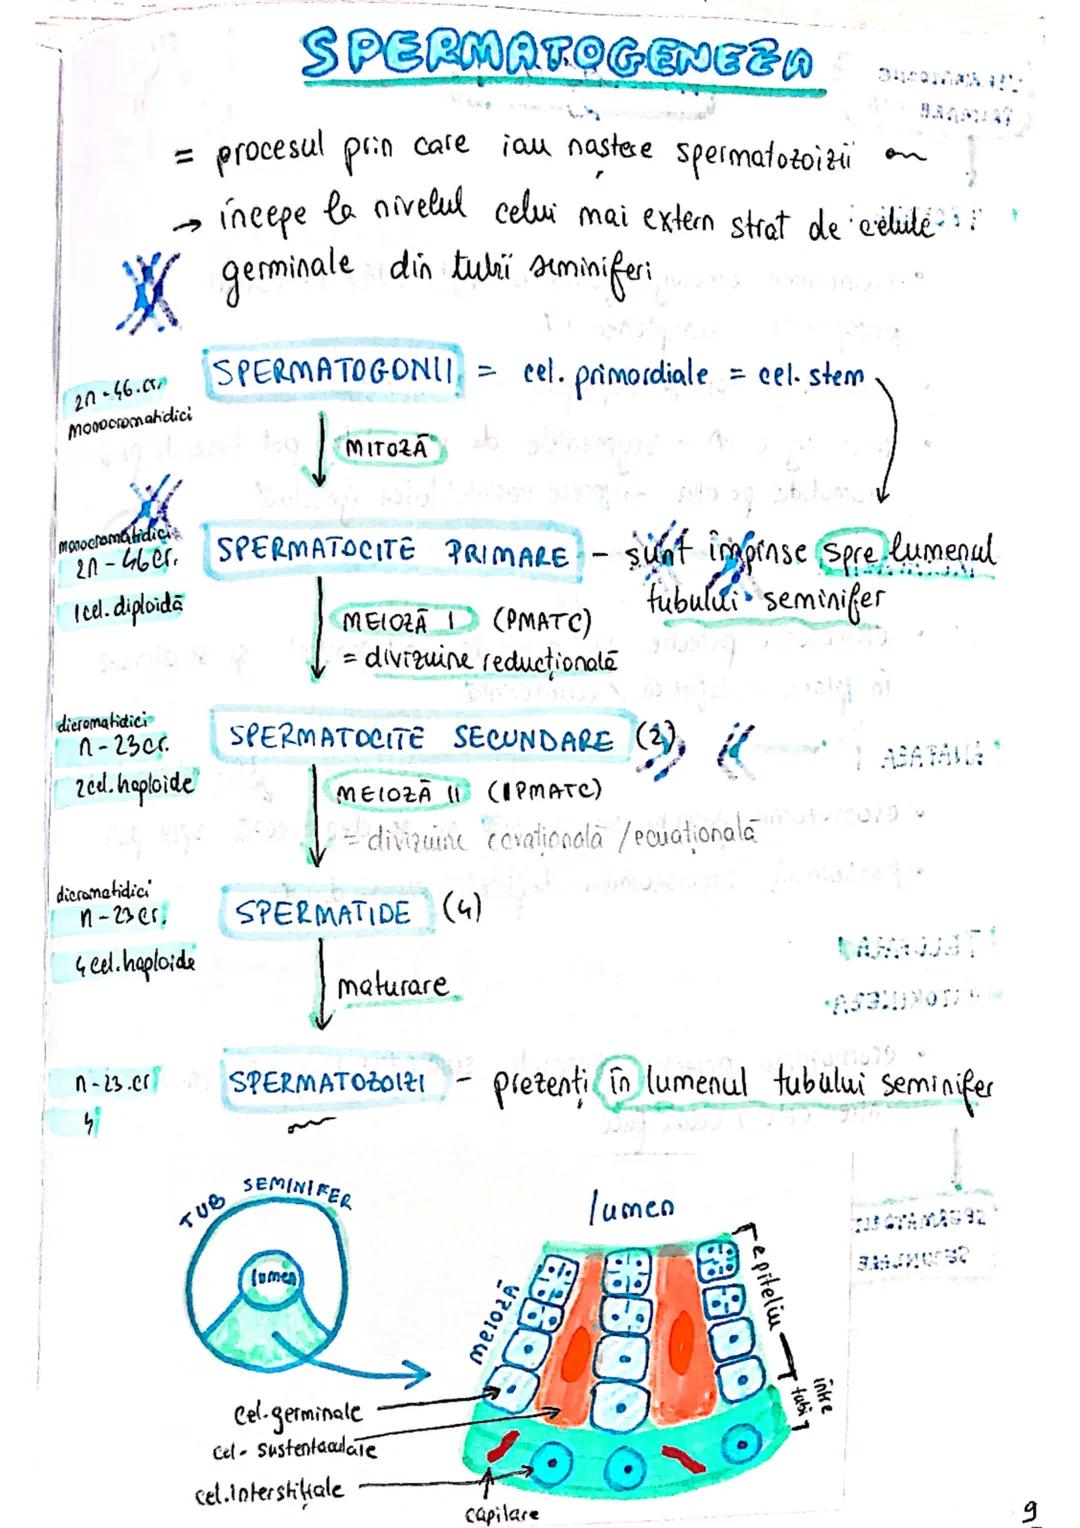 SPERMATOGENEZA
= procesul prin care iau naștere spermatozoizii
→ începe la nivelul celui mai extern strat de celule
germinale din tubii seminiferi
2n - 46.cr.
monocromatidici
SPERMATOGONII = cel. primordiale = cel. stem
MITOZĂ
monocromatidici
2n - 46cr.
1 cel. diploidă
SPERMATOCITE PRIMARE - sunt împinse spre lumenul
tubului seminifer
MEIOZĂ I (PMATC)
= diviziune reducțională
dicromatidici
n - 23cr.
2 cel. haploide
SPERMATOCITE SECUNDARE (2)
MEIOZĂ II (IPMATC)
= diviziune covațională / ecuațională
dicromatidici
n - 23 cr.
4 cel. haploide
SPERMATIDE (4)
maturare
n - 23.cr
4
SPERMATOZOIZI - prezenți în lumenul tubului seminifer
TUB SEMINIFER
lumen
lumen
MEIOZĂ
epiteliu
între
tubi
cel. germinale
cel - sustentaculare
cel. interstițiale
capilare
9